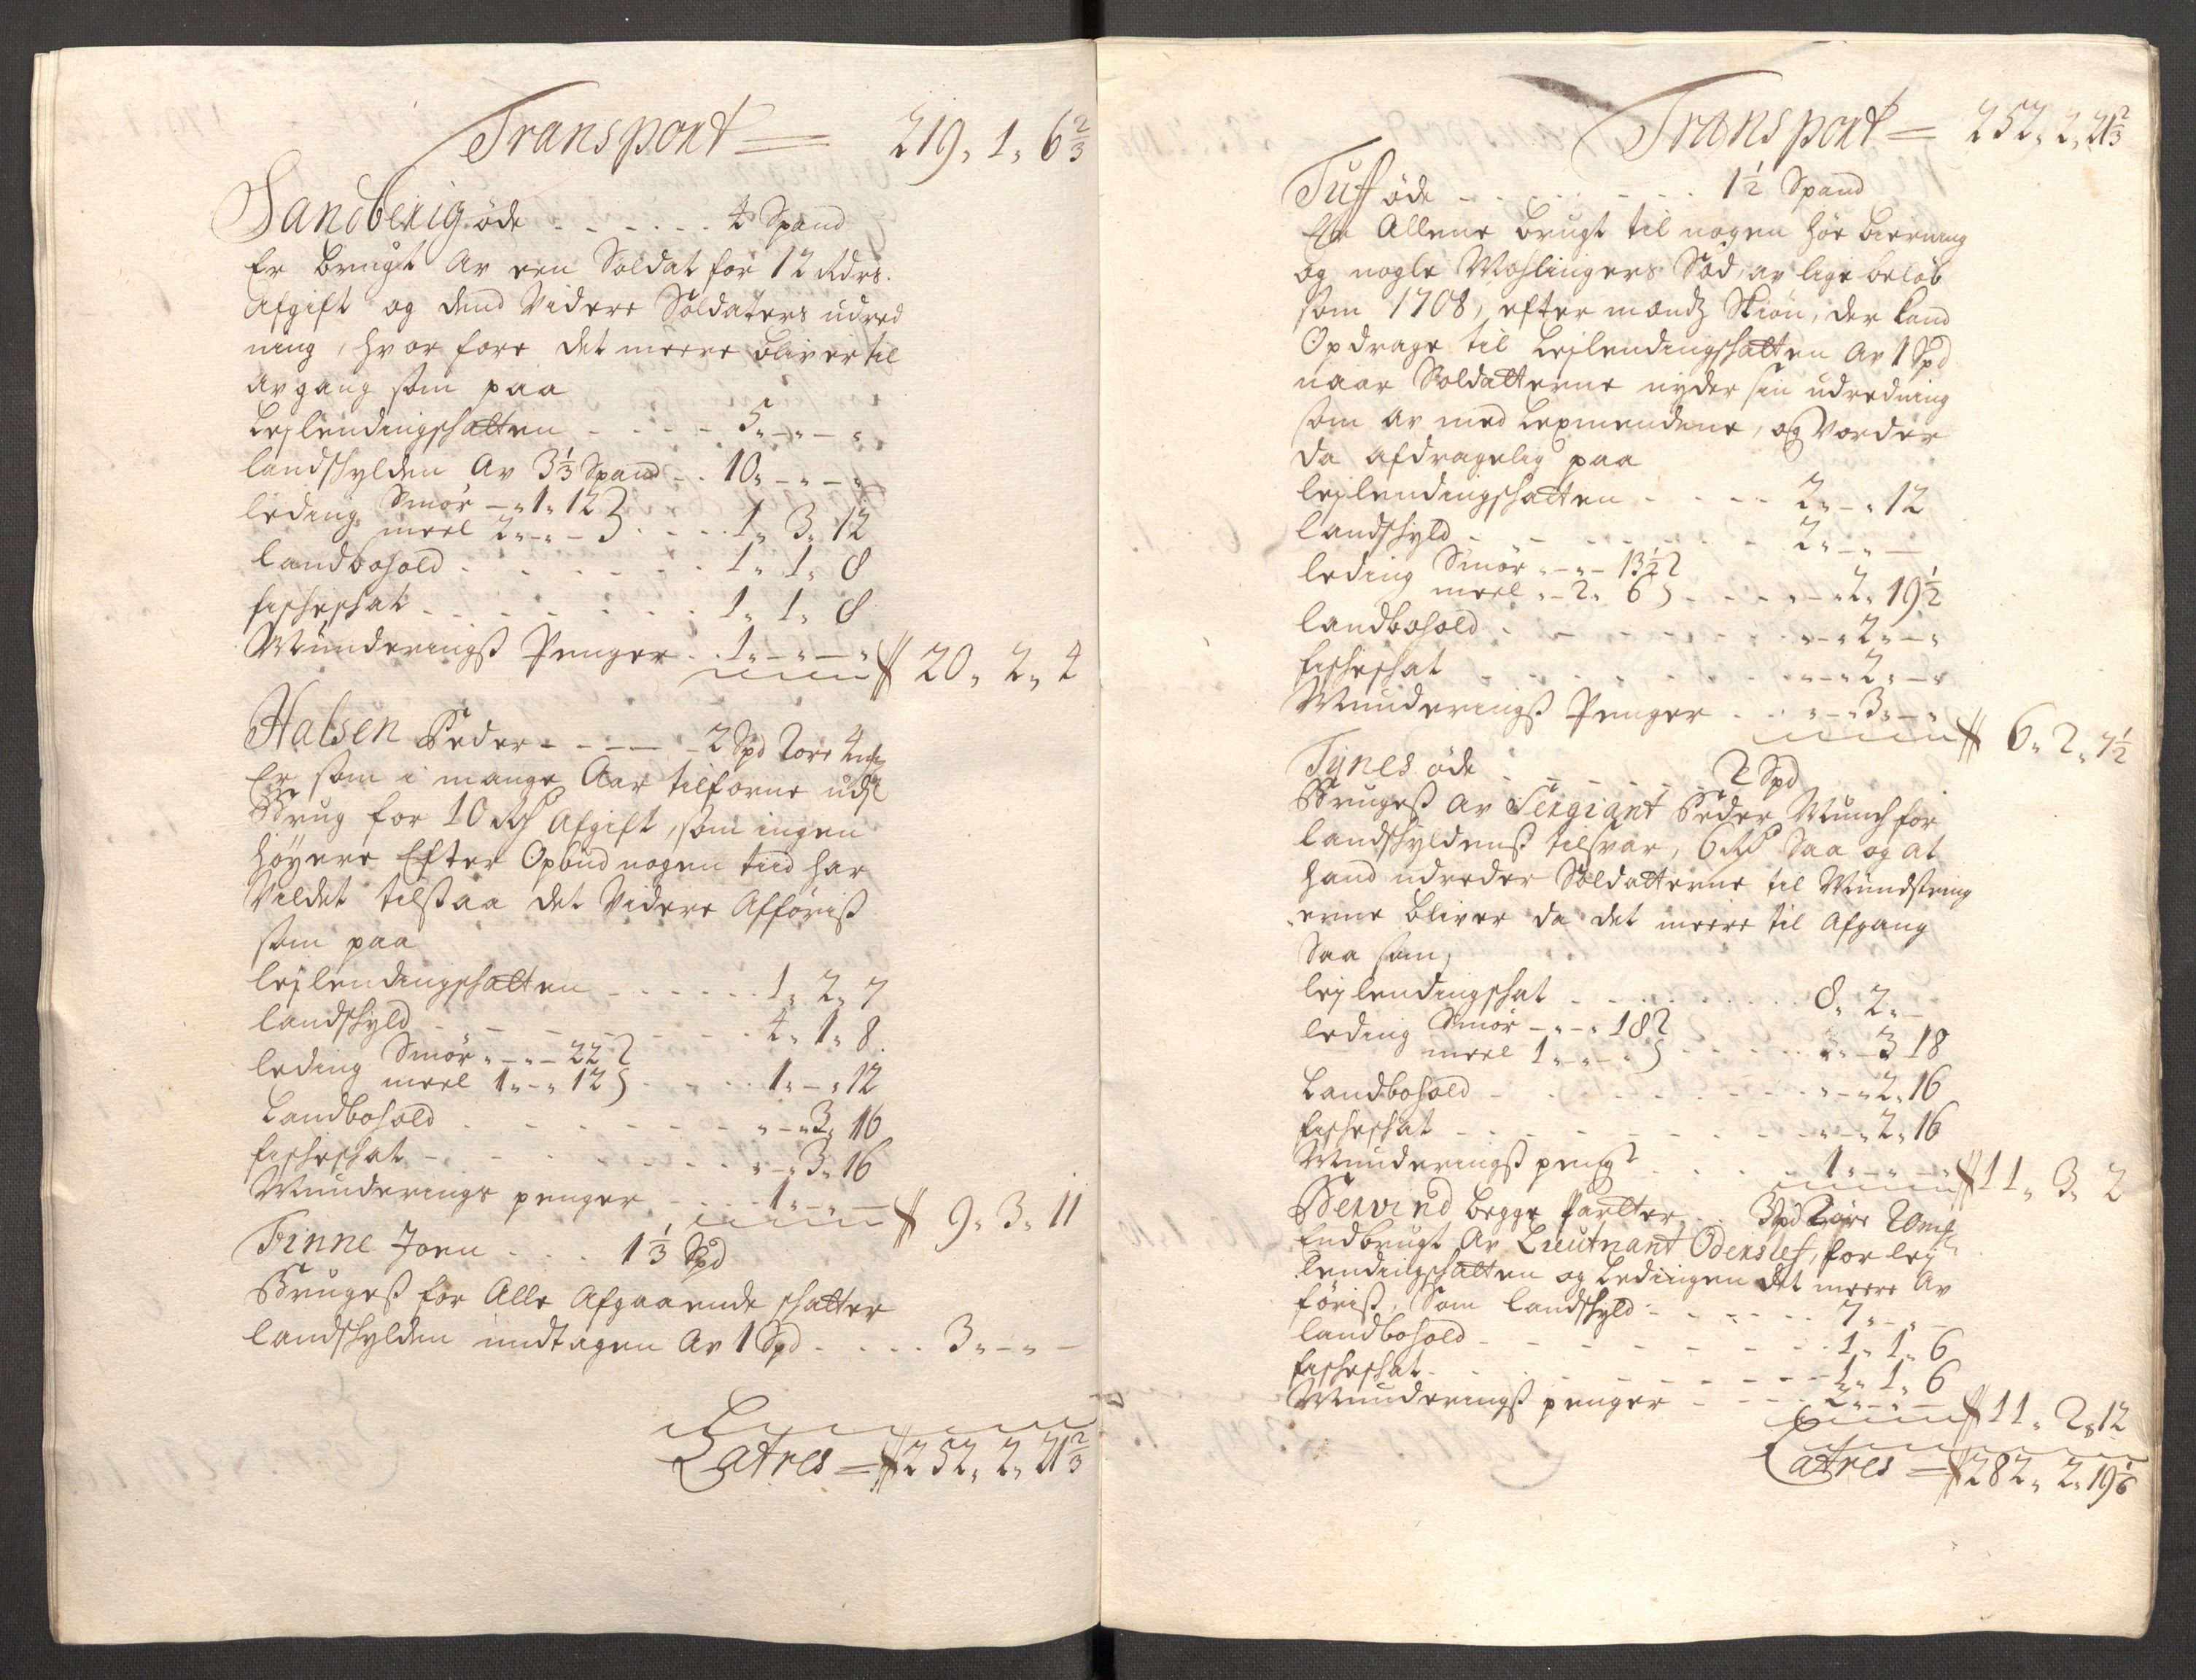 Transport = 219. 1. 6 2/3
Sandberig öde - - - - - - 4 Spand
Er brugt Av een Soldat for 12 Rdrs.
Afgift og dend Videre Soldaters udred
ning, hvor fore det meere bliver til
avgang som paa
Lejlendingschatten - - - - 5. - . - .
landschylden Av 3 1/3 Spand - . 10. - . - .
leding Smör - . 1. 12
meel 2. - . - - - - . 1. 3. 12
landbohold - - - - - - - 1. 1. 8
fischeschat - - - - - - - 1. 1. 8
Munderingß Penger . . 1. - . - . 20. 2. 4
Halsen Peder - - - - - 2 Spd 2 ore 4 mk
Er som i mange Aar tilforne
Brug for 10 Rd Afgift, som ingen
höyere Efter Opbud nogen tiid har
Vildet tilstaa det Videre Afföriß
som paa
lejlendingschatten - - - - - - 1. 2. 7
landschyld - - - - - - - 4. 1. 8.
leding Smör . - . - 22
meel 1. - . 12 - - - - 1. - . 12
Landbohold - - - - - - - . - . 3. 16
fischeschat - - - - - - - . - . 3. 16
Munderings penger - - - 1. - . - 9. 3. 11
Finne Joen - - . . 1 1/3 Spd
Brugeß for Alle Afgaaende schatter
landschylden undtagen Av 1 Spd . . . . 3. - . -
Latres = 252. 2. 21 2/3
Transport = 252. 2. 21 2/3
Tuff öde - - - - - - - - 1 1/2 Spand
Er Allene brugt til nogen höe bierning
og nogle Sæd, av lige beløb
som 1708, efter mændz Skiön, der kand
Opdrage til Lejlendingschatten Av 1 Spd
naar Soldatterne nyder sin udredning
som av med Lexmendene, og vorder
da afdragelig paa
lejlendingschatten - - - - 2. - . 12
landschyld - - - - - - - - 2. - . -
leding Smör . - . - 13 1/2
meel . - 2. 6 - - - - . - . 2. 19 1/2
landbohold - - - - - - - . - . 2. - .
fischeschat - - - - - - - . - . 2. - .
Munderingß Penger . . . - . 3. - . 6. 2. 7 1/2
Tynes öde - - - - - - 2 Spd
Brugeß Av Sergiant Peder Munch for
landschyldenß tilsvar, 6 Rd Saa og at
hand udreder Soldatterne til Mundstring
erne bliver da det meere til Afgang
Saa som,
lejlendingschat - - - - - - - 8. 2. -
leding Smör - . - . 18
meel 1. - . - . - - - - . - 3. 18
Landbohold - - - - - - - . - . 2. 16
fischeschat - - - - - - - . - . 2. 16
Munderingß peng - - - - 1. - . - 11. 3. 2
Bervind begge Parter . . 3 Spd 2 öre 20 mk
Endbrugt Av Lieutnant Odensles, for lej
lendingschatten og Ledingen det meere Av
föriß, Som landschyld - - - - - - 7. - . -
landbohold - - - - - - - - 1. 1. 6
fischeschat - - - - - - - - 1. 1. 6
Munderingß penger - - - - 2. - . - 11. 2. 12
Latres = 282. 2. 19 1/6